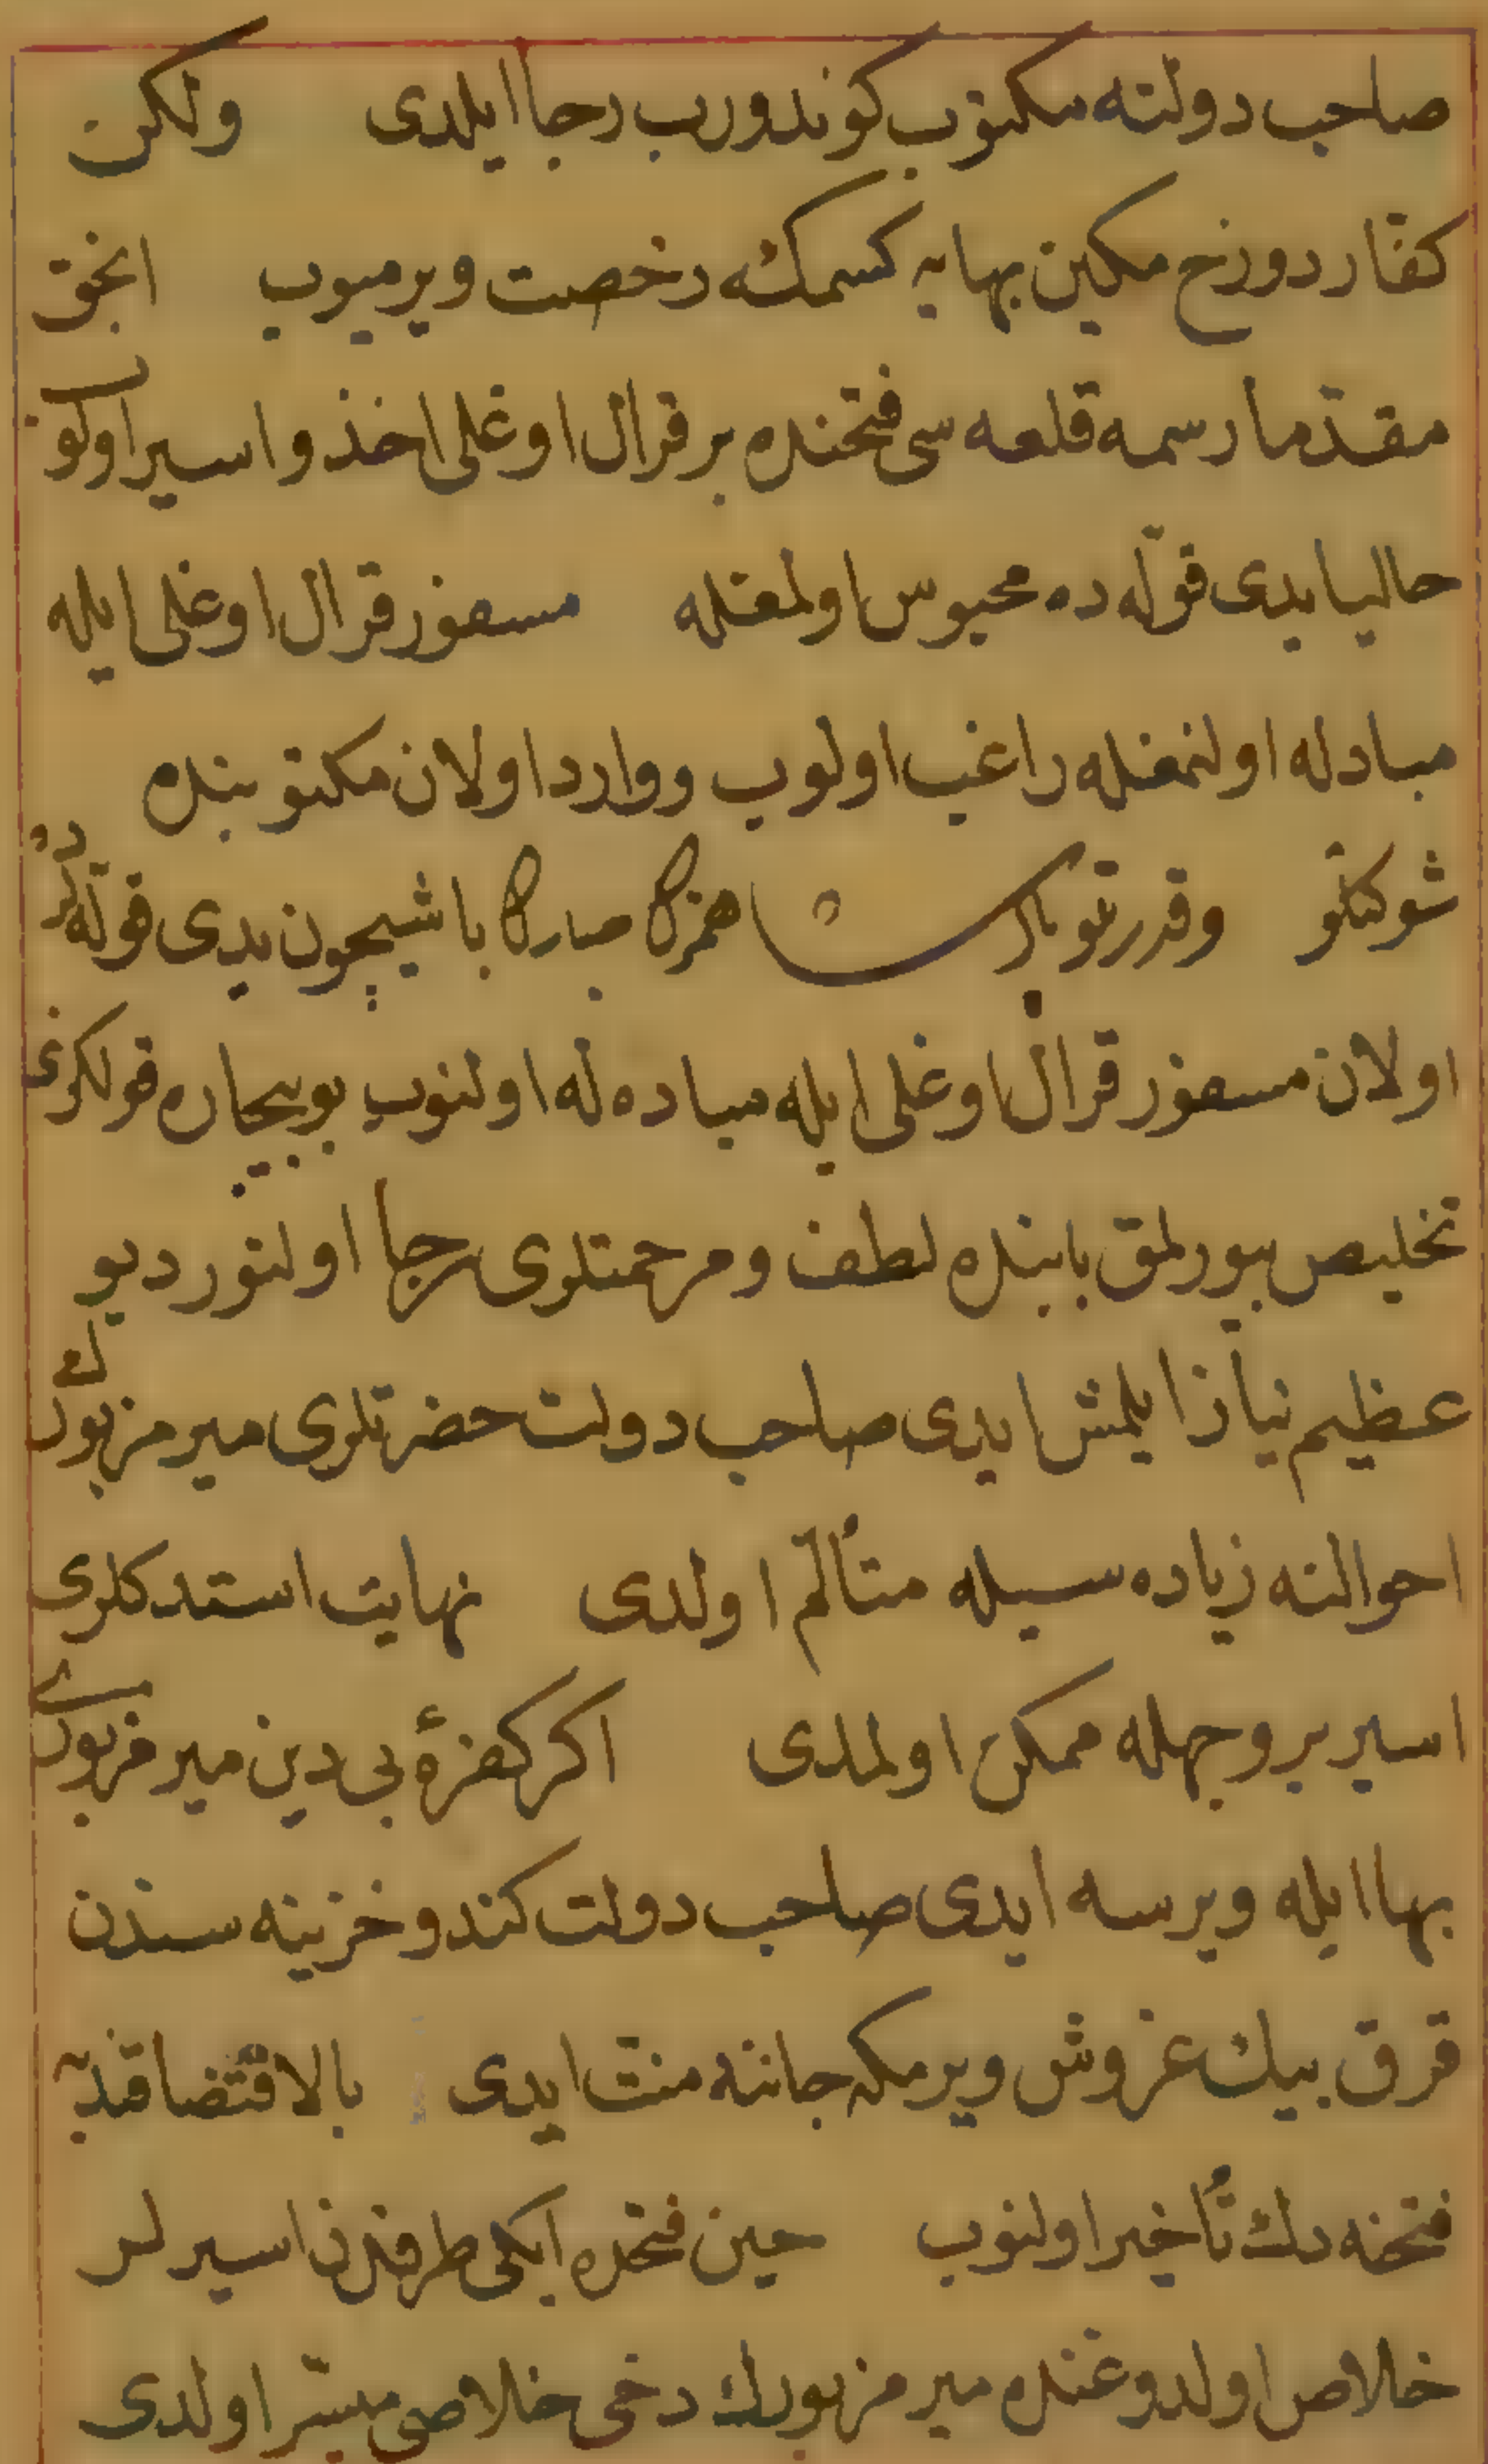 صاحب دولته مكتوب كوندورب رجا ايلدى ولكن
كفار دوزخ مكين بهايه كسمكه رخصت ويرميوب انجق
مقدّما رسمه قلعه سى فتحنده بر قرال اوغلى اخذ واسير اولوب
حاليا يدى قولّه ده محبوس اولمغله مسفور قرال اوغلى ايله
مبادله اولنمغله راغب اولوب ووارد اولان مكتوبنده
شوكتلو وقدرتلو پادشاهمزك مبارك باشيچون يدى قولّه لرده
اولان مسفور قرال اوغلى ايله مباده له اولنوب بو بيچاره قوللرينى
تخليص بيورلمق بابنده لطف ومرحمتلرى رجا اولنور ديو
عظيم نياز ايلمش ايدى صاحب دولت حضرتلرى مير مزبورك
احوالنه زياده سيله متألّم اولدى نهايت استدكلرى
اسير بر وجهله ممكن اولمدى اكر كفرهٔ بى دين مير مزبورى
بها ايله ويرسه ايدى صاحب دولت كندو خزينه سندن
قرق بيك غروش ويرمكه جاننه منّت ايدى بالاقتضا قنديه
فتحنه دك تأخير اولنوب حين فتحده ايكى طرفدن اسيرلر
خلاص اولدوغنده مير مزبورك دخى خلاصى ميسّر اولدى